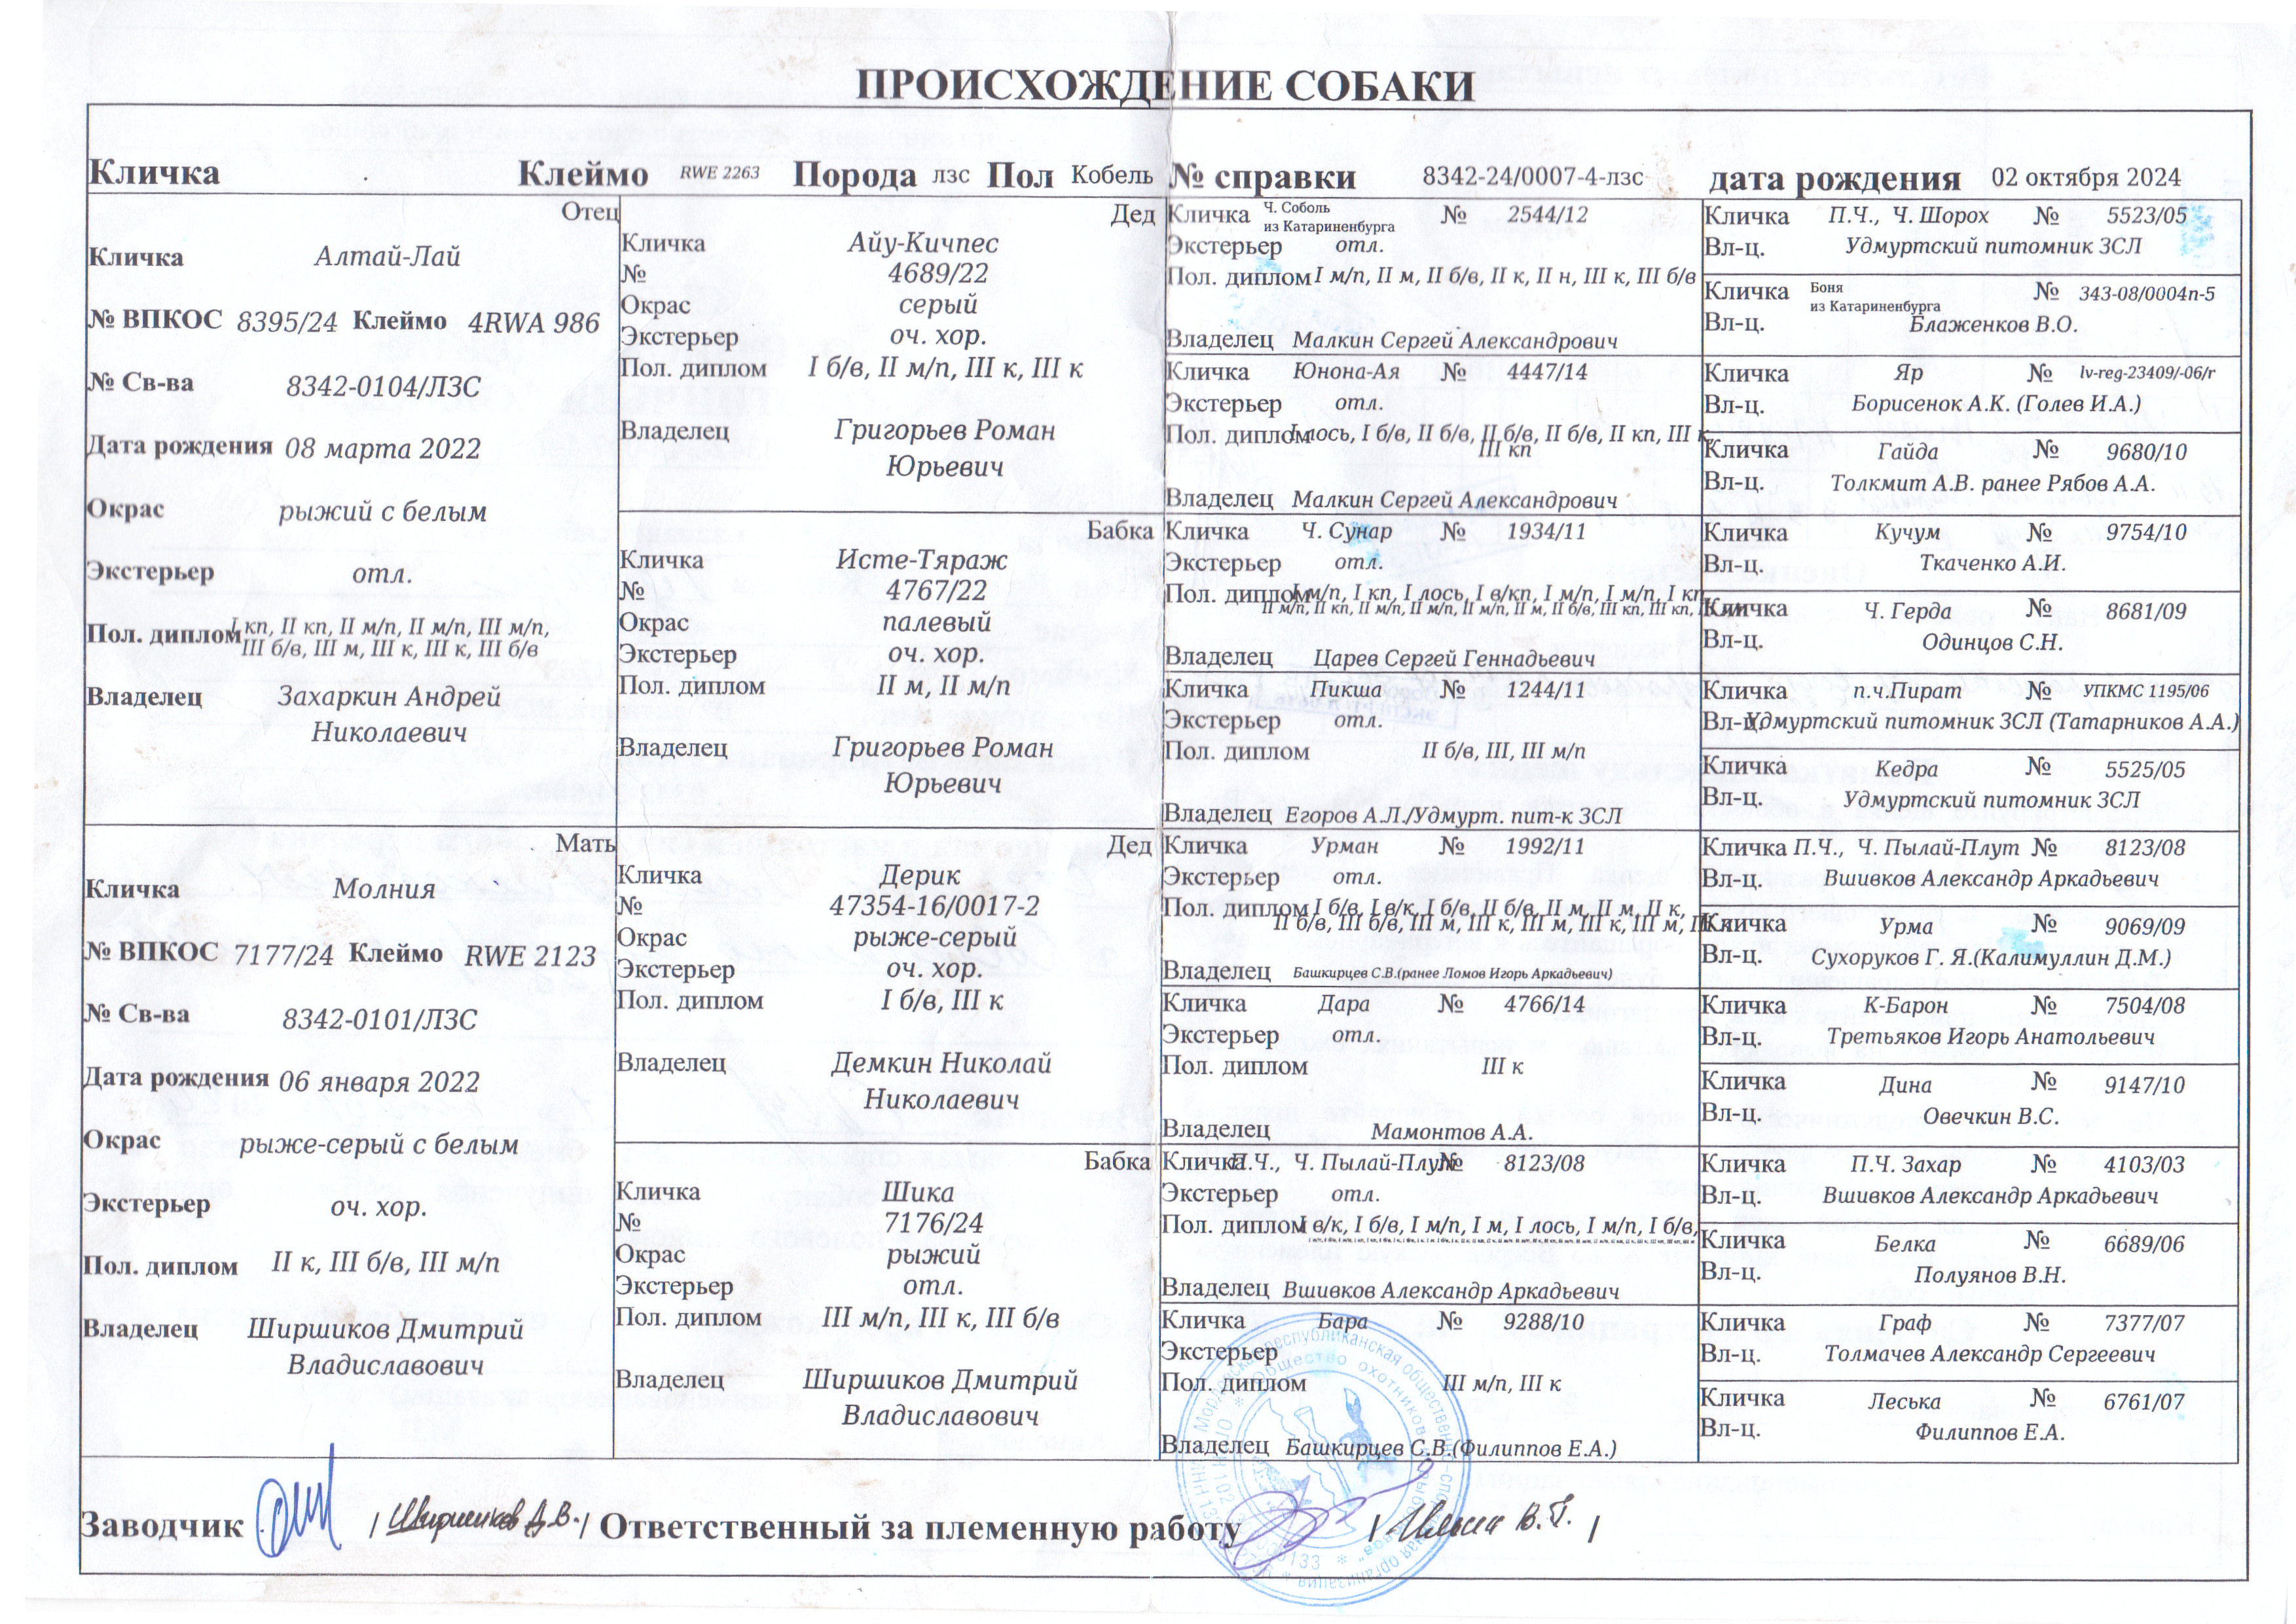 ПРОИСХОЖДЕНИЕ СОБАКИ
Кличка Клеймо RWE 2263 Порода лзс Пол Кобель № справки 8342-24/0007-4-лзс дата рождения 02 октября 2024
Отец
Кличка Алтай-Лай
№ ВПКОС 8395/24 Клеймо 4RWA 986
№ Св-ва 8342-0104/ЛЗС
Дата рождения 08 марта 2022
Окрас рыжий с белым
Экстерьер отл.
Пол. диплом I кп, II кп, II м/п, II м/п, III м/п,
III б/в, III м, III к, III к, III б/в
Владелец Захаркин Андрей
Николаевич
Мать
Кличка Молния
№ ВПКОС 7177/24 Клеймо RWE 2123
№ Св-ва 8342-0101/ЛЗС
Дата рождения 06 января 2022
Окрас рыже-серый с белым
Экстерьер оч. хор.
Пол. диплом II к, III б/в, III м/п
Владелец Ширшиков Дмитрий
Владиславович
Дед
Кличка Айу-Кичпес
№ 4689/22
Окрас серый
Экстерьер оч. хор.
Пол. диплом I б/в, II м/п, III к, III к
Владелец Григорьев Роман
Юрьевич
Бабка
Кличка Исте-Тяраж
№ 4767/22
Окрас палевый
Экстерьер оч. хор.
Пол. диплом II м, II м/п
Владелец Григорьев Роман
Юрьевич
Дед
Кличка Дерик
№ 47354-16/0017-2
Окрас рыже-серый
Экстерьер оч. хор.
Пол. диплом I б/в, III к
Владелец Демкин Николай
Николаевич
Бабка
Кличка Шика
№ 7176/24
Окрас рыжий
Экстерьер отл.
Пол. диплом III м/п, III к, III б/в
Владелец Ширшиков Дмитрий
Владиславович
Кличка Ч. Соболь
из Катариненбурга № 2544/12
Экстерьер отл.
Пол. диплом I м/п, II м, II б/в, II к, II н, III к, III б/в
Владелец Малкин Сергей Александрович
Кличка Юнона-Ая № 4447/14
Экстерьер отл.
Пол. диплом I лось, I б/в, II б/в, II б/в, II б/в, II кп, III к,
III кп
Владелец Малкин Сергей Александрович
Кличка Ч. Сунар № 1934/11
Экстерьер отл.
Пол. диплом I м/п, I кп, I лось, I в/кп, I м/п, I м/п, I кп,
II м/п, II кп, II м/п, II м/п, II м/п, II м, II б/в, III кп, III кп,
Владелец Царев Сергей Геннадьевич
Кличка Пикша № 1244/11
Экстерьер отл.
Пол. диплом II б/в, III, III м/п
Владелец Егоров А.Л./Удмурт. пит-к ЗСЛ
Кличка Урман № 1992/11
Экстерьер отл.
Пол. диплом I б/в, I в/к, I б/в, II б/в, II м, II м, II к,
II б/в, III б/в, III м, III к, III м, III к, III м, III к
Владелец Башкирцев С.В.(ранее Ломов Игорь Аркадьевич)
Кличка Дара № 4766/14
Экстерьер отл.
Пол. диплом III к
Владелец Мамонтов А.А.
Кличка П.Ч., Ч. Пылай-Плут № 8123/08
Экстерьер отл.
Пол. диплом I в/к, I б/в, I м/п, I м, I лось, I м/п, I б/в,
Владелец Вшивков Александр Аркадьевич
Кличка Бара № 9288/10
Экстерьер
Пол. диплом III м/п, III к
Владелец Башкирцев С.В.(Филиппов Е.А.)
Кличка П.Ч., Ч. Шорох № 5523/05
Вл-ц. Удмуртский питомник ЗСЛ
Кличка Боня
из Катариненбурга № 343-08/0004п-5
Вл-ц. Блаженков В.О.
Кличка Яр № lv-reg-23409/-06/r
Вл-ц. Борисенок А.К. (Голев И.А.)
Кличка Гайда № 9680/10
Вл-ц. Толкмит А.В. ранее Рябов А.А.
Кличка Кучум № 9754/10
Вл-ц. Ткаченко А.И.
Кличка Ч. Герда № 8681/09
Вл-ц. Одинцов С.Н.
Кличка п.ч.Пират № УПКМС 1195/06
Вл-ц. Удмуртский питомник ЗСЛ (Татарников А.А.)
Кличка Кедра № 5525/05
Вл-ц. Удмуртский питомник ЗСЛ
Кличка П.Ч., Ч. Пылай-Плут № 8123/08
Вл-ц. Вшивков Александр Аркадьевич
Кличка Урма № 9069/09
Вл-ц. Сухоруков Г. Я.(Калимуллин Д.М.)
Кличка К-Барон № 7504/08
Вл-ц. Третьяков Игорь Анатольевич
Кличка Дина № 9147/10
Вл-ц. Овечкин В.С.
Кличка П.Ч. Захар № 4103/03
Вл-ц. Вшивков Александр Аркадьевич
Кличка Белка № 6689/06
Вл-ц. Полуянов В.Н.
Кличка Граф № 7377/07
Вл-ц. Толмачев Александр Сергеевич
Кличка Леська № 6761/07
Вл-ц. Филиппов Е.А.
Заводчик / Ширшиков Д.В. / Ответственный за племенную работу / Ильин В.Г. /